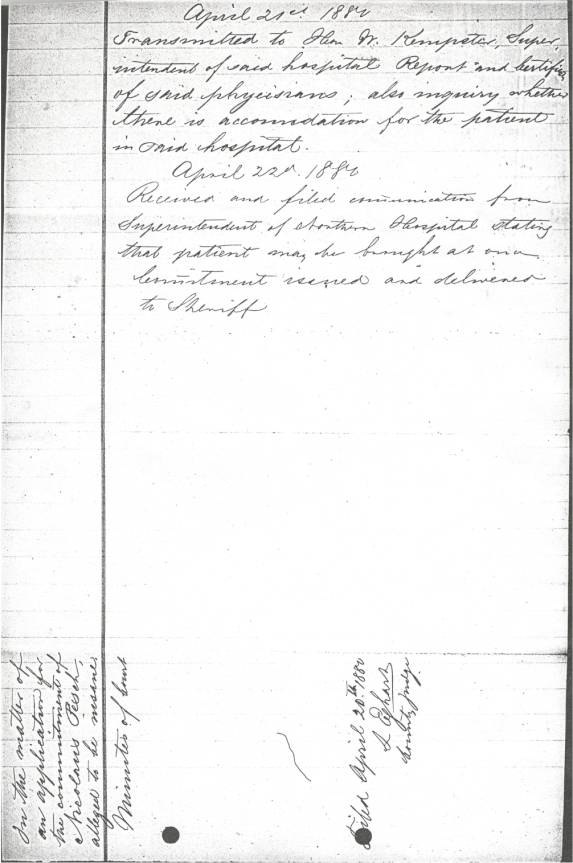 April 21st 1880
Transmitted to Hon W. Kempster, Super,
intendent of said hospital Report and Certifics
of said phycisians; also inquiry whether
there is accomodation for the patient
in said hospital.
April 22d. 1880
Received and filed communication from
Superintendent of Northern Hospital stating
that patient may be brought at once
Commitment issued and delivered
to Sheriff
In the matter of
an application for
the commitment of
Nicolaus Pesch,
alleged to be insane
Minutes of Court
Filed April 20th 1880
County Judge